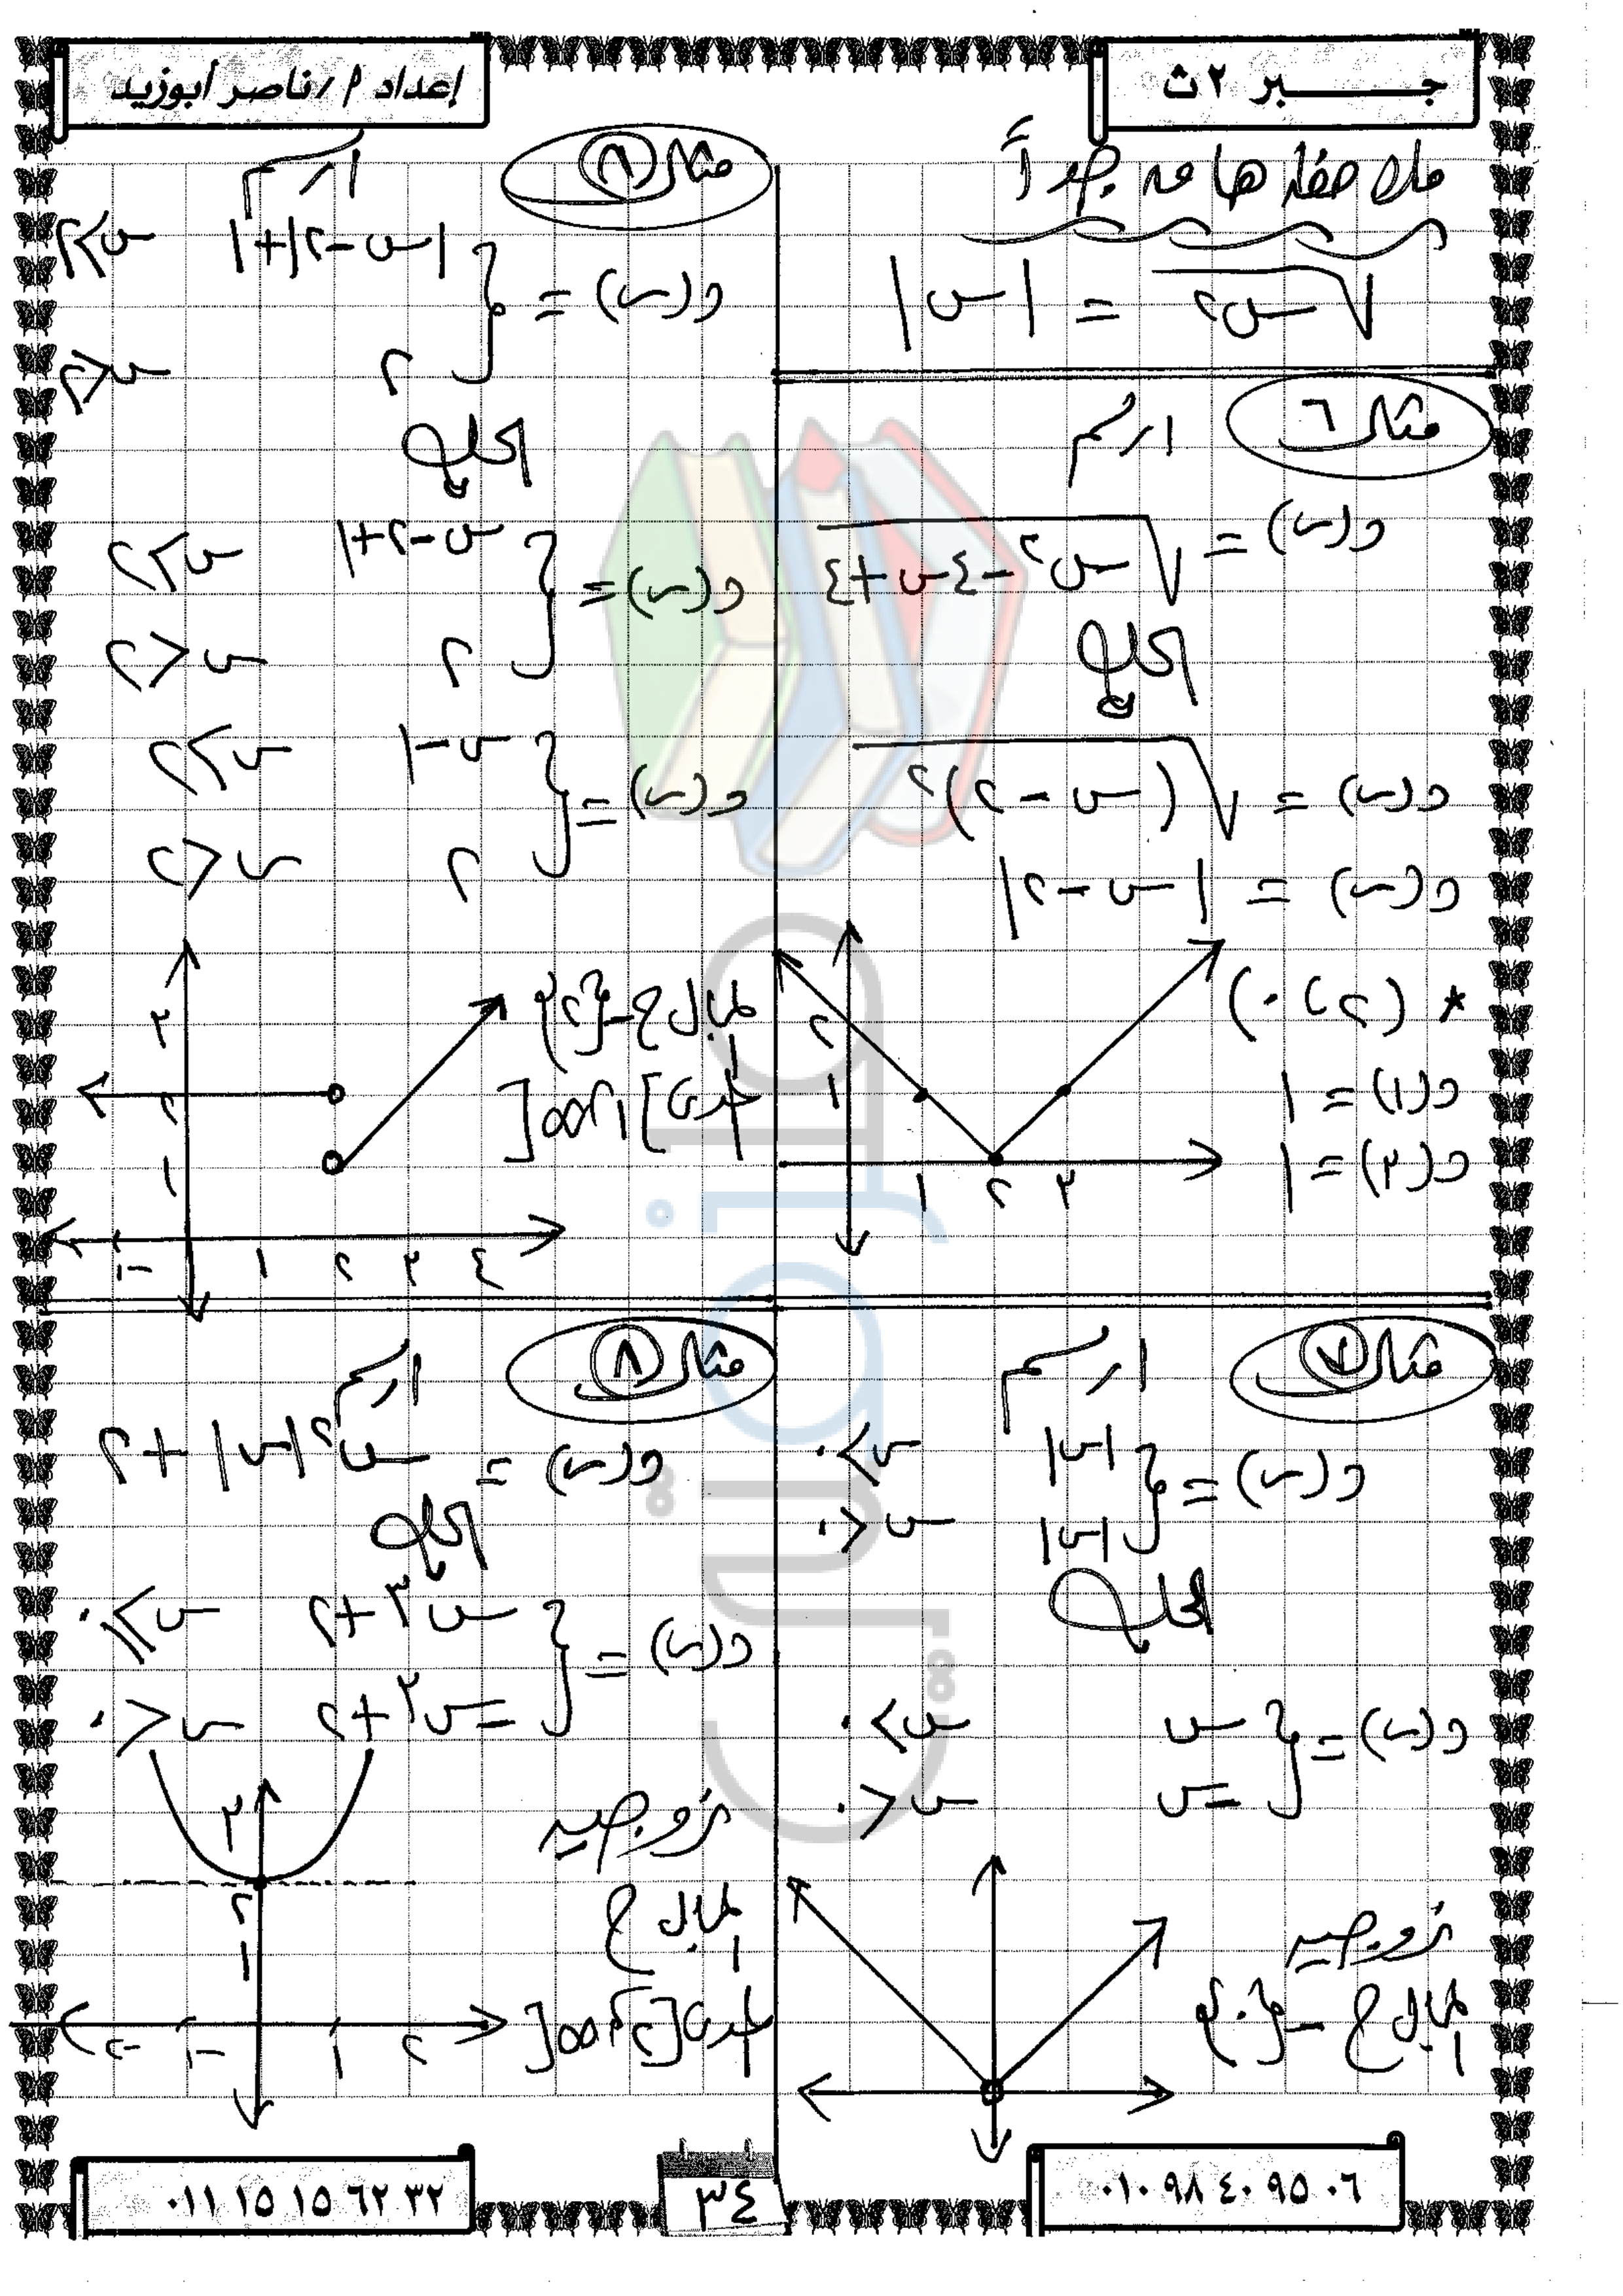 جــــبر ٢ث
إعداد م/ناصر أبوزيد
ملاحظة هامة جداً
√س٢ = |س|
مثال ٦ ارسم
د(س) = √س٢-٤س+٤
الحل
د(س) = √(س-٢)٢
د(س) = |س-٢|
* (٢،٠)
د(١) = ١
د(٣) = ١
٢
١
١ ٢ ٣
مثال ٧ ارسم
د(س) = { |س| س>٠
|س| س<٠
الحل
د(س) = { س س>٠
-س س<٠
زوجيه
المجال ح-{٠}
مثال ٨ ارسم
د(س) = { |س-٢|+١ س>٢
٢ س<٢
الحل
د(س) = { س-٢+١ س>٢
٢ س<٢
د(س) = { س-١ س>٢
٢ س<٢
المجال ح-{٢}
المدى ]١،∞[
٣
٢
١
-١ ١ ٢ ٣ ٤
مثال ٨ ارسم
د(س) = س٢|س|+٢
الحل
د(س) = { س٣+٢ س≥٠
-س٣+٢ س<٠
زوجيه
المجال ح
المدى [٢،∞[
٣
٢
١
-٢ -١ ١ ٢
٠١٠ ٩٨ ٤٠ ٩٥ ٠٦
٣٤
٠١١ ١٥ ١٥ ٦٢ ٣٢
قالبي الثانية